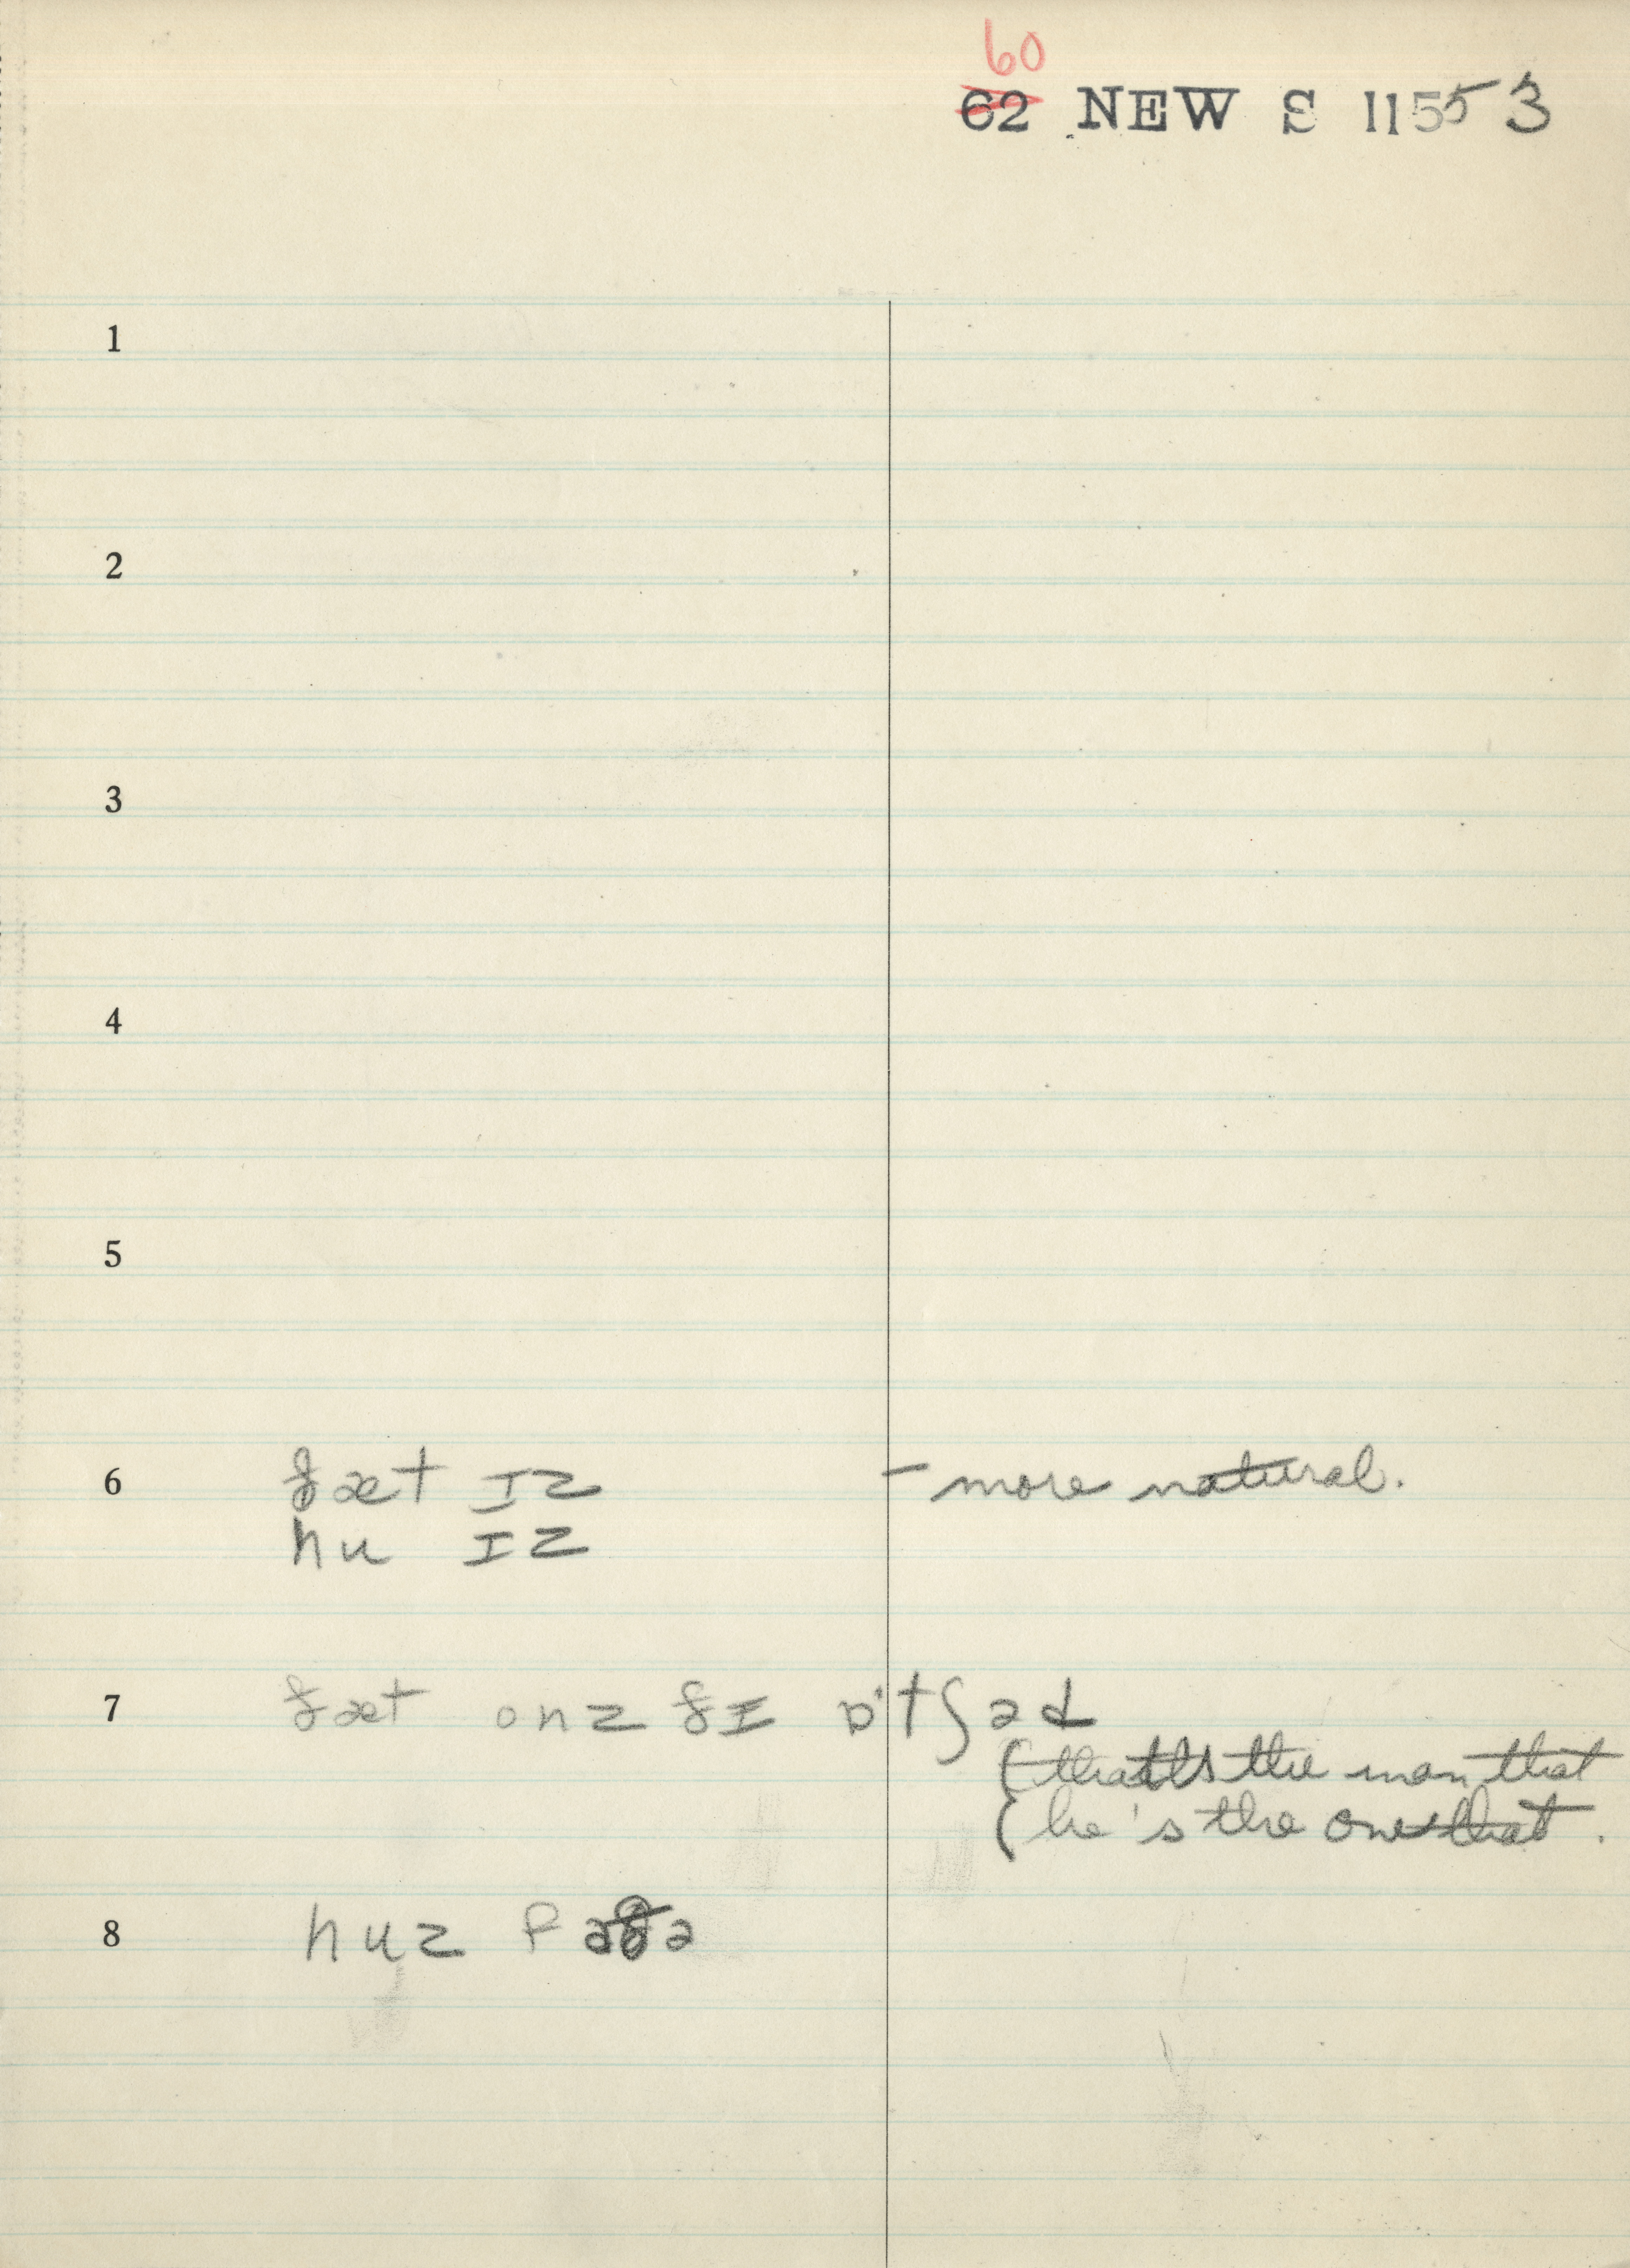 60
62 NEW S 1155 3
1
2
3
4
5
6 ðæt ɪz – more natural.
hu ɪz
7 ðæt onz ðɪ ɒ'tʃəd
(that's the man that
(he's the one that.
8 huz